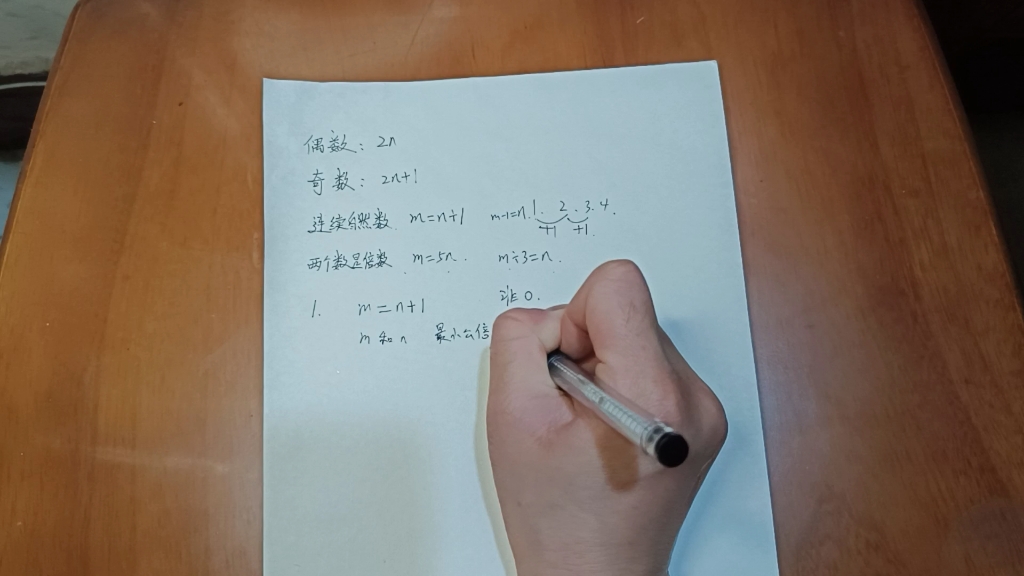 偶数：2n
奇数：2n+1
连续自然数 m=n+1 m-1=n. 1. 2. 3. 4.
+1 +1.
两个数是倍数 m=5n. m÷3=n.
1. m=n+1 非0.
m和n 最小公倍